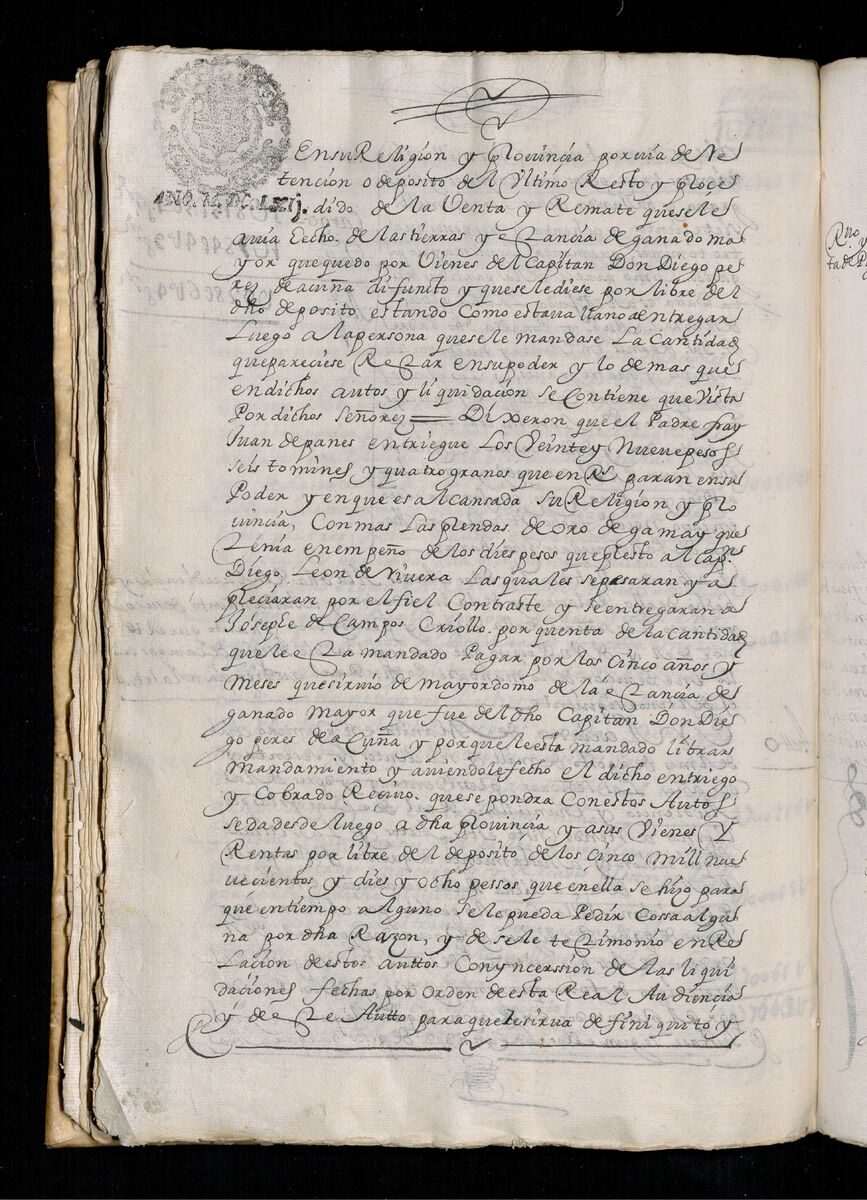 En su Religion y provincia por via de Re
tencion o deposito del Ultimo Resto y proce
ANO. M. DC. LXIJ.
dido de la Venta y Remate que se le
avia Fecho de las tierras y estancia de ganado ma
yor que quedo por Vienes del Capitan Don Diego pe
rez de acuña difunto y que se le diese por libre del
dho deposito estando como estava llano a entregar
Luego a la persona que se le mandase La Cantidad
que pareciese Restar en su poder y lo demas que
en dichos autos y liquidacion se Contiene que Vista
Por dichos Señores = Dixeron que el Padre fray
Juan de panes entriegue Los Veinte y Nueve pesos
seis tomines y quatro granos que en Rs paran en su
Poder y en que es alcansada su Religion y pro
vincia, Con mas las prendas de oro de gama y que
tenia en empeño de los dies pesos que presto al capn
Diego Leon de Vivera Las quales se pesaran y a
preciaran por el fiel Contraste y se entregaran a
Josephe de Campos Criollo por quenta de la Cantidad
que le esta mandado Pagar por los Cinco años y
Meses que sirvio de mayordomo de la estancia de
ganado mayor que fue del dho Capitan Don Die
go peres de aCuña y por que le esta mandado librar
Mandamiento y aviendole fecho el dicho entriego
y Cobrado Recivo que se pondra Con estos Autos
se da desde luego a dha provincia y a sus Vienes Y
Rentas por libre del deposito de los Cinco mill nue
vecientos y dies y ocho pessos que en ella se hizo para
que en tiempo alguno se le pueda Pedir Cossa algu
na por dha Razon, y de se le testimonio en Re
Lacion de estos auttos Con yncerssion de las liqui
daciones fechas por orden de esta Real Audiencia
Y de este Autto para que le sirva de finiquito y